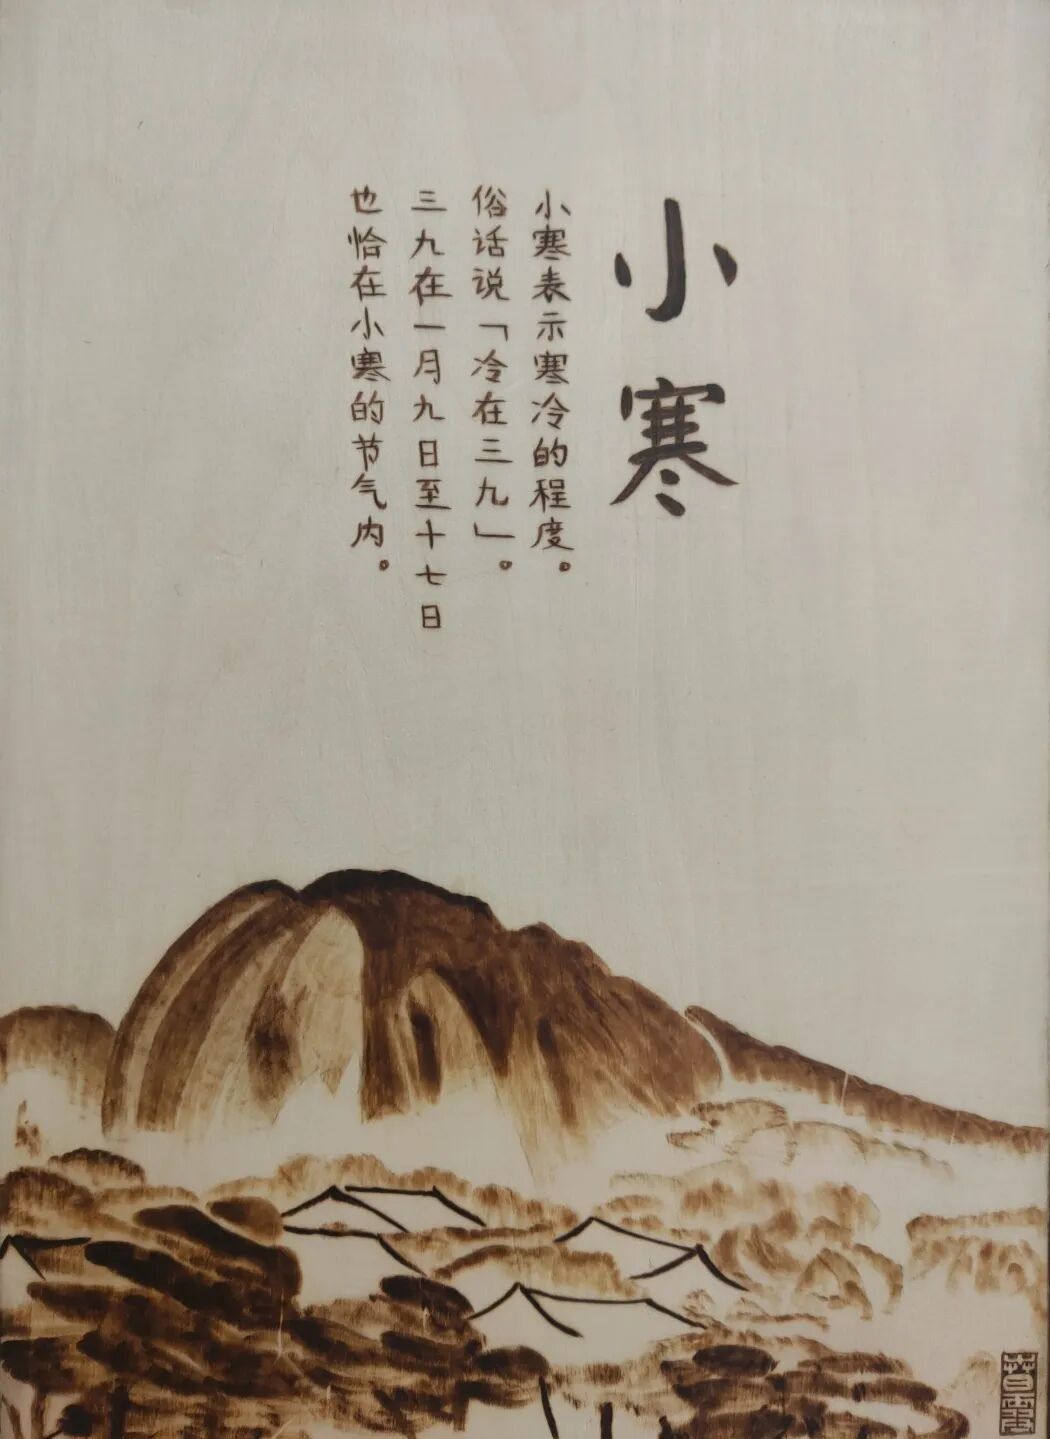 小寒
小寒表示寒冷的程度。
俗话说「冷在三九」。
三九在一月九日至十七日
也恰在小寒的节气内。